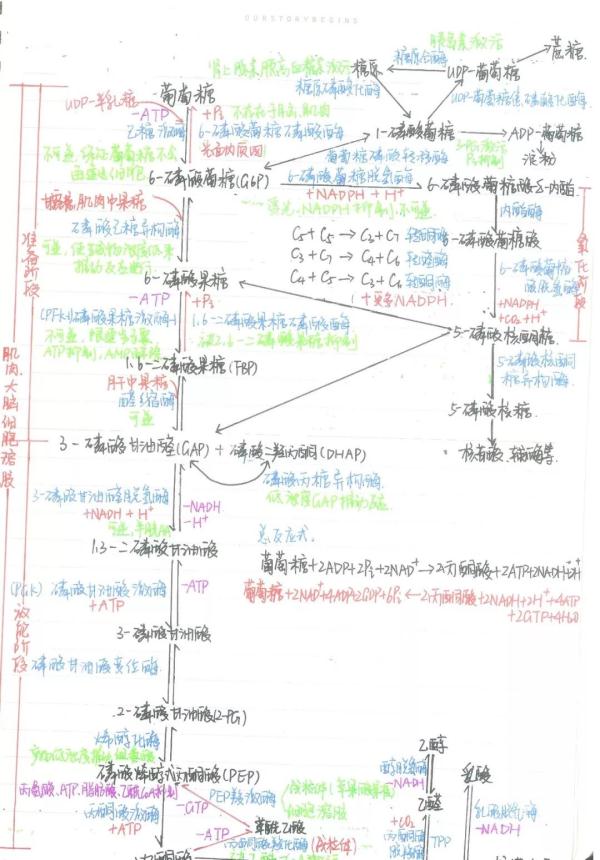 OURSTORYBEGINS
胰岛素激活
肾上腺素,胰高血糖素激活
糖原
糖原合酶
UDP-葡萄糖
蔗糖
糖原磷酸化酶
UDP-葡萄糖焦磷酸化酶
葡萄糖
UDP-半乳糖
-ATP
+Pi
不存在于脑,肌肉
己糖激酶
6-磷酸葡萄糖磷酸酶
1-磷酸葡萄糖
ADP-葡萄糖
淀粉
Pi抑制
葡萄糖磷酸转移酶
6-磷酸葡萄糖(G6P)
6-磷酸葡萄糖脱氢酶
+NADPH + H⁺
6-磷酸葡萄糖酸-δ-内酯
内酯酶
6-磷酸葡萄糖酸
甘露糖,肌肉中果糖
磷酸己糖异构酶
C5 + C5 → C3 + C7 转酮酶
C3 + C7 → C4 + C6 转醛酶
C4 + C5 → C3 + C6 转酮酶
+NADPH
+CO2 + H⁺
氧化阶段
准备阶段
6-磷酸果糖
-ATP
+Pi
(PFK-1)磷酸果糖激酶-1
1,6-二磷酸果糖磷酸酶
5-磷酸核酮糖
5-磷酸核酮糖异构酶
1,6-二磷酸果糖(FBP)
肝中果糖
醛缩酶
可逆
5-磷酸核糖
核苷酸、辅酶等
3-磷酸甘油醛(GAP) + 磷酸二羟丙酮(DHAP)
磷酸丙糖异构酶
3-磷酸甘油醛脱氢酶
+NADH + H⁺
-NADH
-H⁺
总反应式
1,3-二磷酸甘油酸
葡萄糖+2ADP+2Pi+2NAD⁺→2丙酮酸+2ATP+2NADH+2H⁺
葡萄糖+2NAD⁺+4ADP+2GDP+6Pi←2丙酮酸+2NADH+2H⁺+4ATP
+2GTP+4H2O
(PGK) 磷酸甘油酸激酶
+ATP
-ATP
肌肉、大脑细胞溶胶
放能阶段
3-磷酸甘油酸
磷酸甘油酸变位酶
2-磷酸甘油酸(2-PG)
烯醇化酶
磷酸烯醇式丙酮酸(PEP)
丙氨酸、ATP、脂肪酸、乙酰CoA抑制
丙酮酸激酶
+ATP
-GTP
PEP羧激酶
草酰乙酸
-ATP
丙酮酸羧化酶(线粒体)
丙酮酸
乙醇
醇脱氢酶
-NADH
乙醛
+CO2
TPP
乳酸
乳酸脱氢酶
-NADH